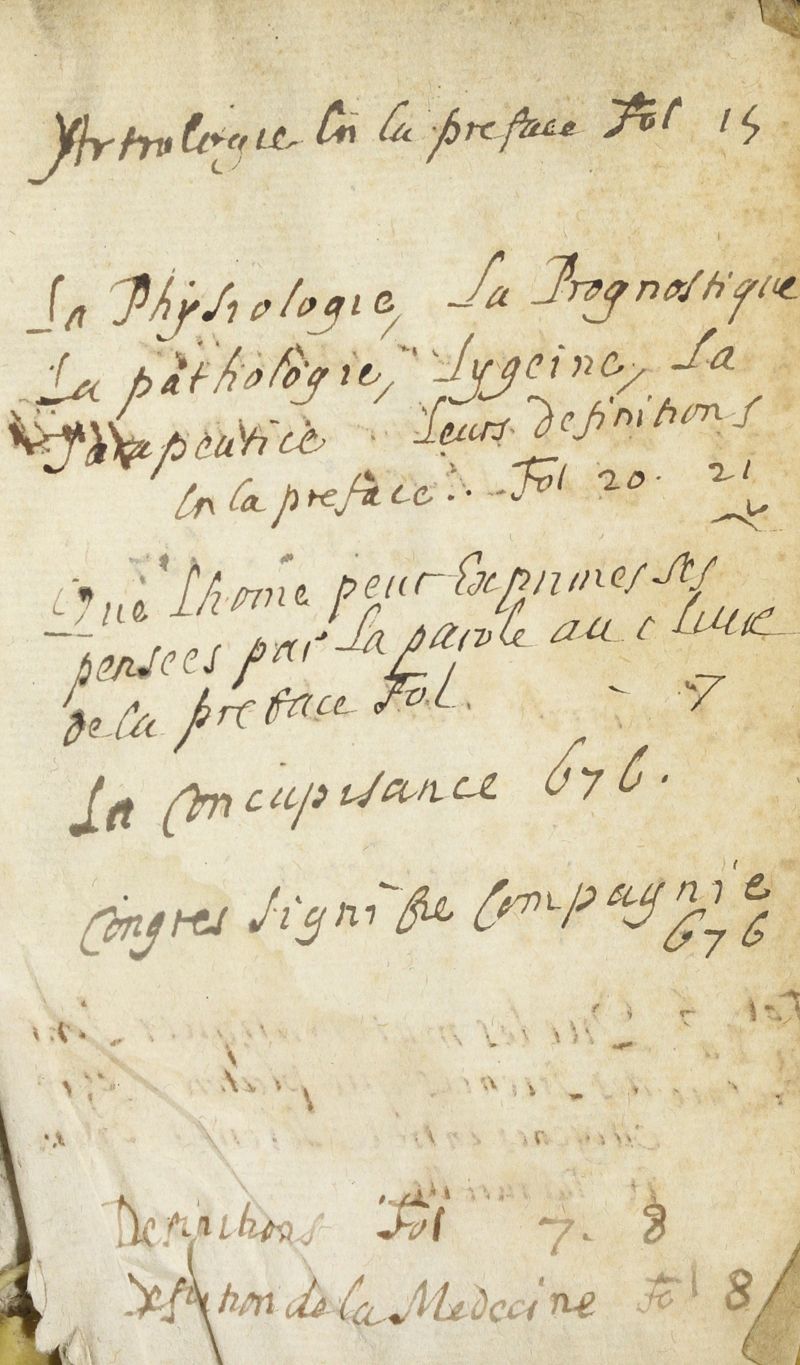 Astrologie En la preface Fol 15
La Physiologie, La Prognostique
La pathologie, Lygeine, La
Tarapeutice Leurs definitions
En la preface.. Fol 20. 21
Que Lhome peut Exprimer ses
pensees par La parole au
de la preface Fol. 7
La Concupisance 676.
Congres signifie Compagnie
676
Definitions Fol 7. 8
Defintion de la Medecine Fol 8